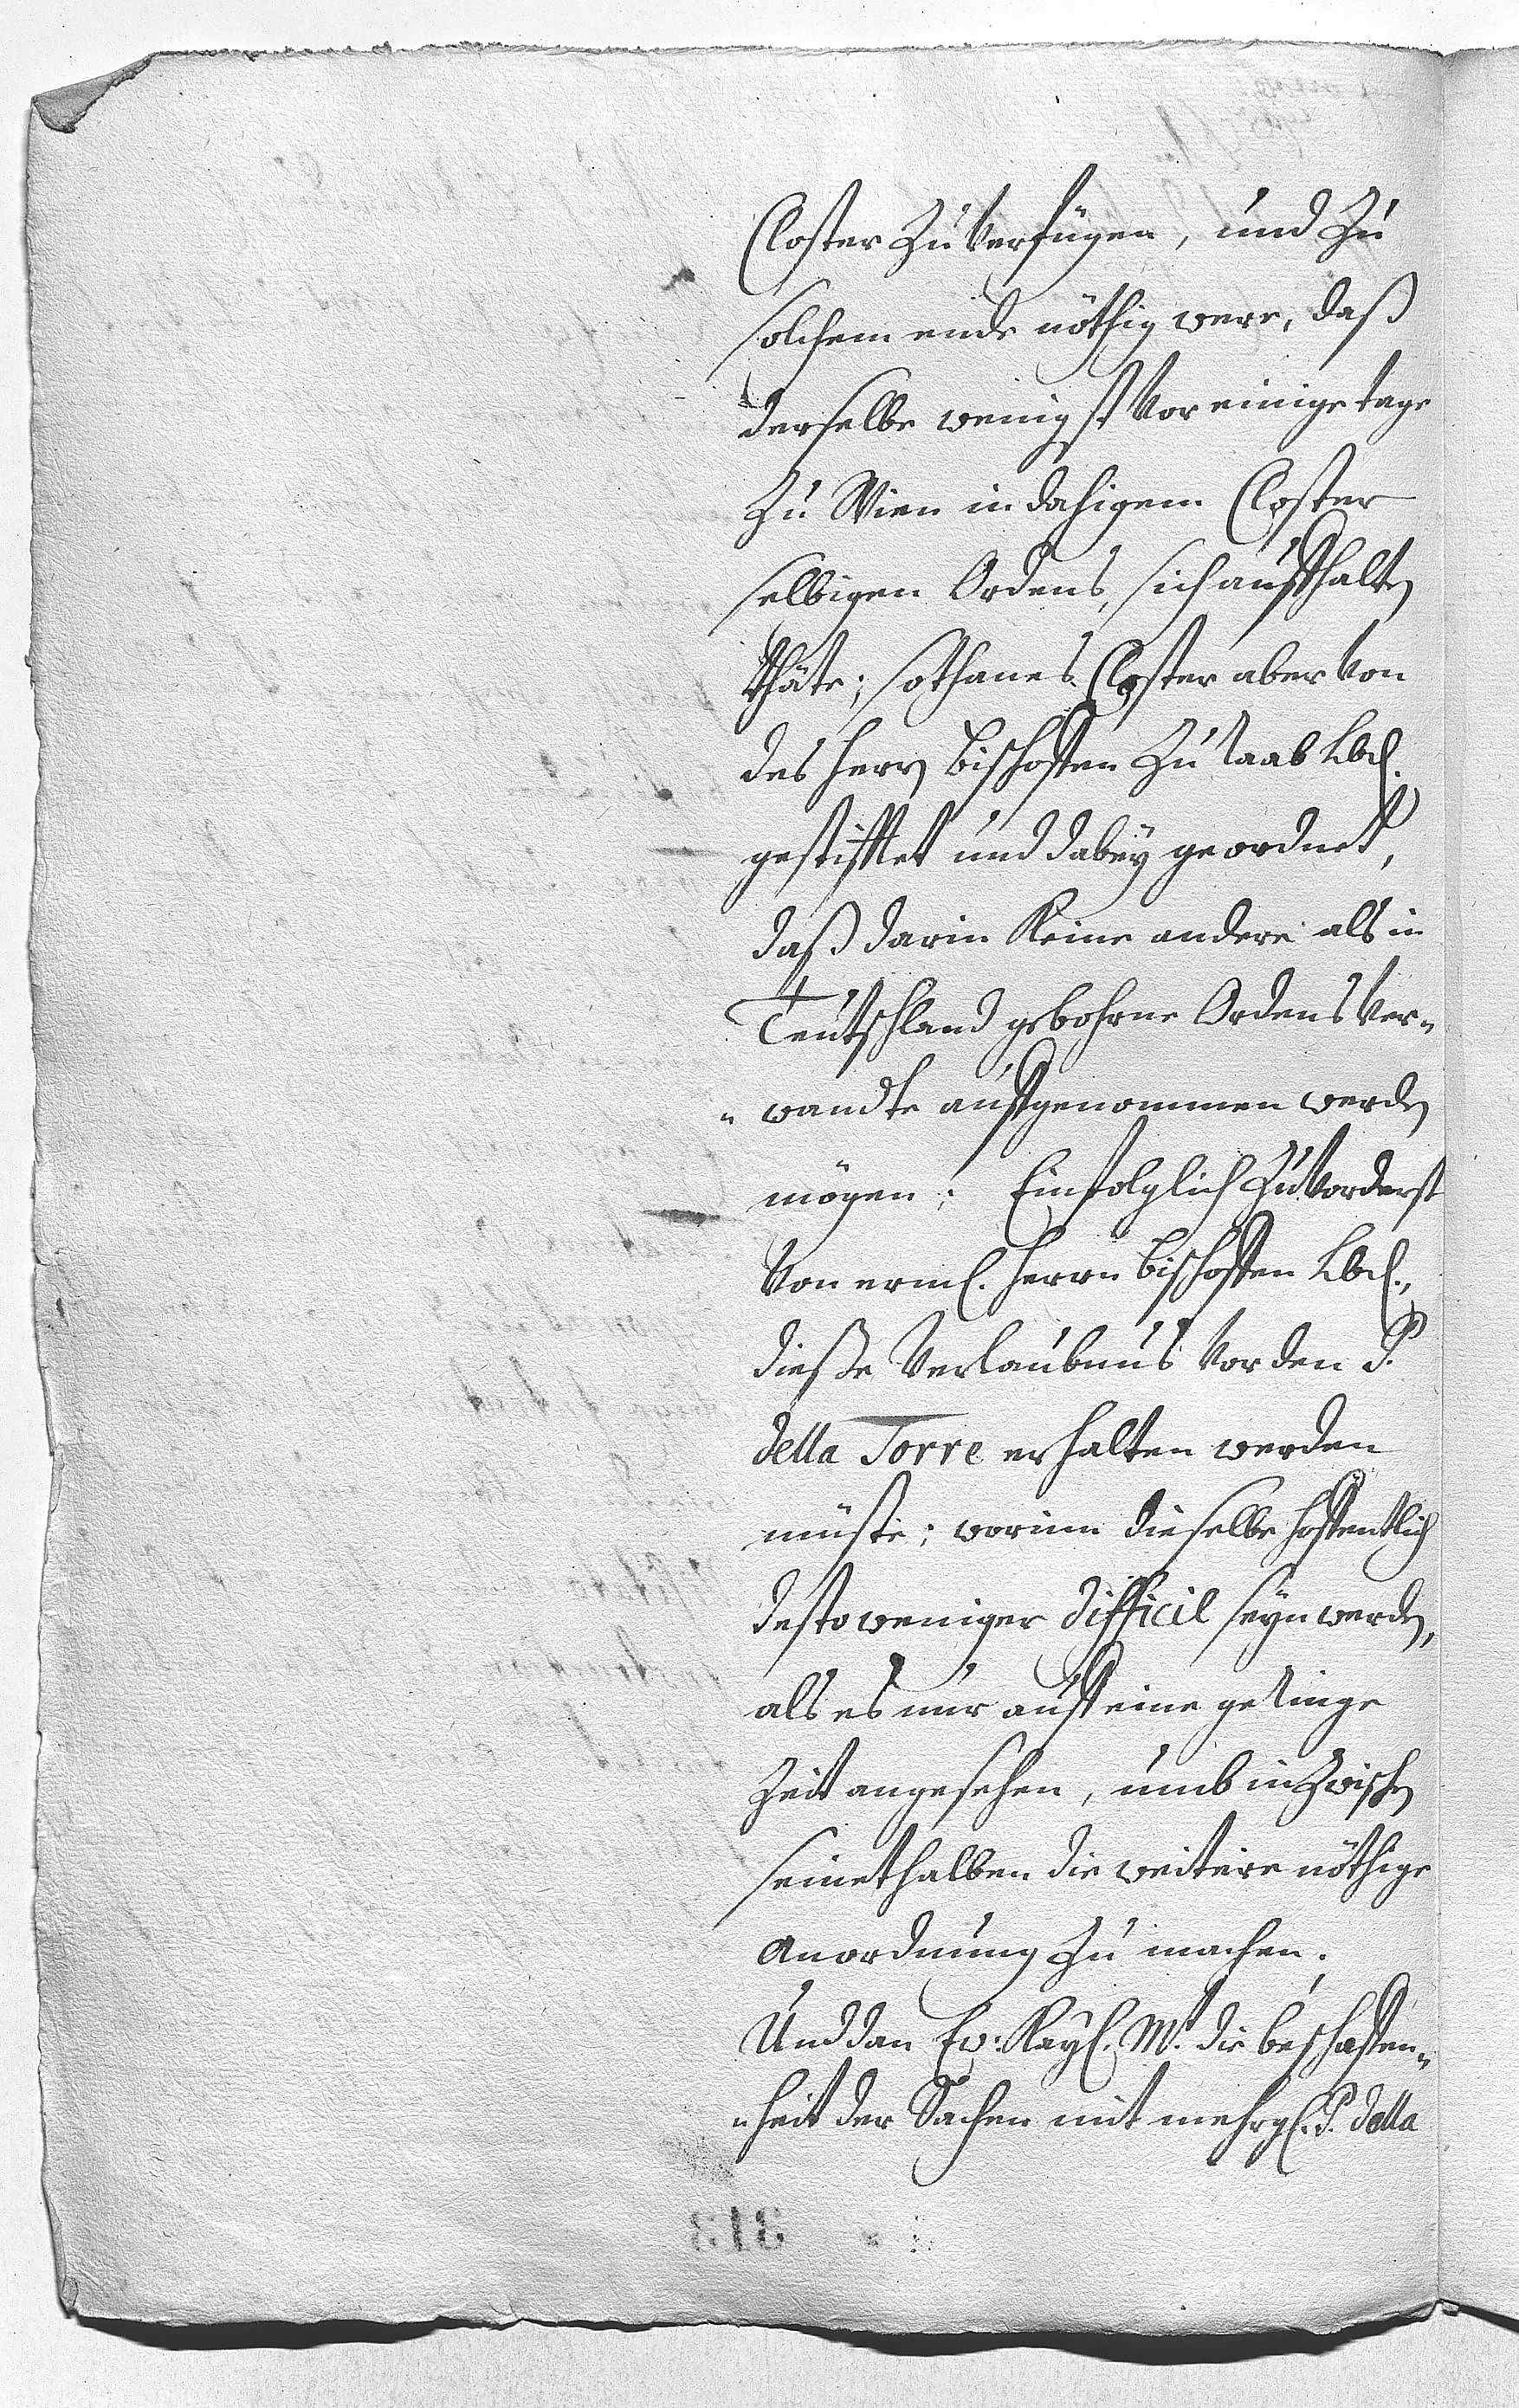 Closter zu verfügen, und zu
solchem ende nöthig were, daß
derselbe wenigst vor einige tage
zu Wien in dasigem Closter
selbigen Ordens, sich aufhalten
thäte; sothanes Closter aber von
des Herrn Bischoffen zu Raab Lbd.
gestifftet und dabey geordnet,
daß darin keine andere als in
Teutschland gebohrne Ordens Ver¬
¬wandte aufgenommen werden
mögen; Einfolglich zuvorderst
von erml. Herrn Bischoffen Lbd.,
dieße Verlaubnus vor den P.
della Torre erhalten werden
müste; worinn dieselbe hoffentlich
desto weniger difficil seyn werden,
als es nur auf eine geringe
Zeit angesehen, umb inzwischen
seinethalben die weitere nöthige
anordnung zu machen.
Und dan Ew: Kayl. Mt. die beschaffen¬
¬heit der Sachen mit mehrgl. P. della
313